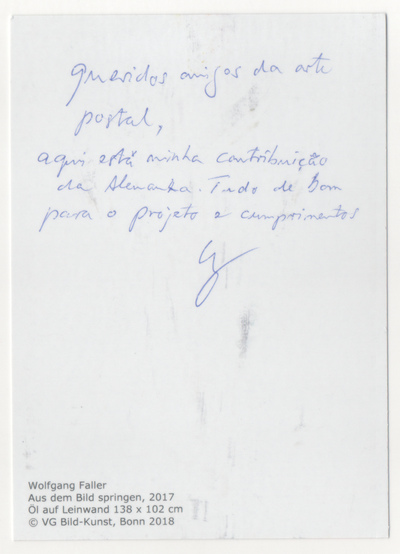 Queridos amigos da arte
postal,
aqui está minha contribuição
da Alemanha. Tudo de bom
para o projeto e cumprimentos
Wolfgang Faller
Aus dem Bild springen, 2017
Öl auf Leinwand 138 x 102 cm
© VG Bild-Kunst, Bonn 2018